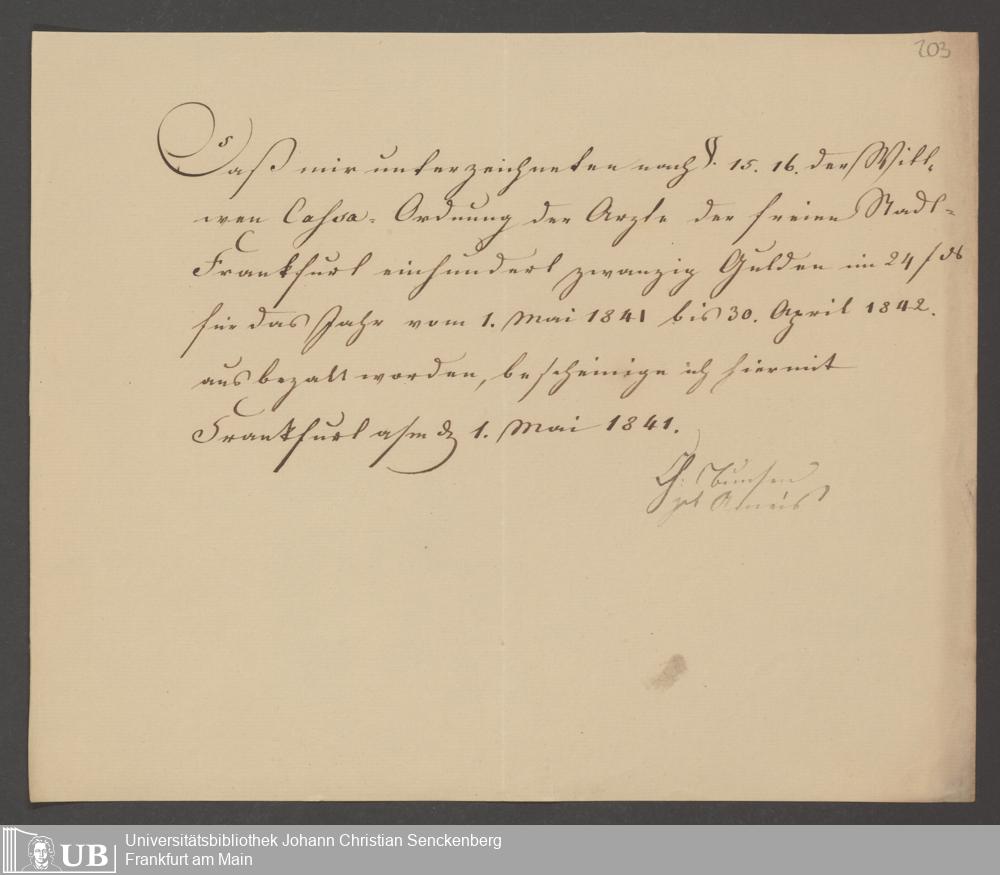 203
Daß mir unterzeichneten nach §. 15. 16. der Witt-
wen Cassa-Ordnung der Ärzte der freien Stadt-
Frankfurt einhundert zwanzig Gulden im 24 f
für das Jahr vom 1. Mai 1841 bis 30. April 1842.
ausbezalt worden, bescheinige ich hiermit
Frankfurt a/m d 1. Mai 1841.
Ch: Bunsen
geb
UB
Universitätsbibliothek Johann Christian Senckenberg
Frankfurt am Main